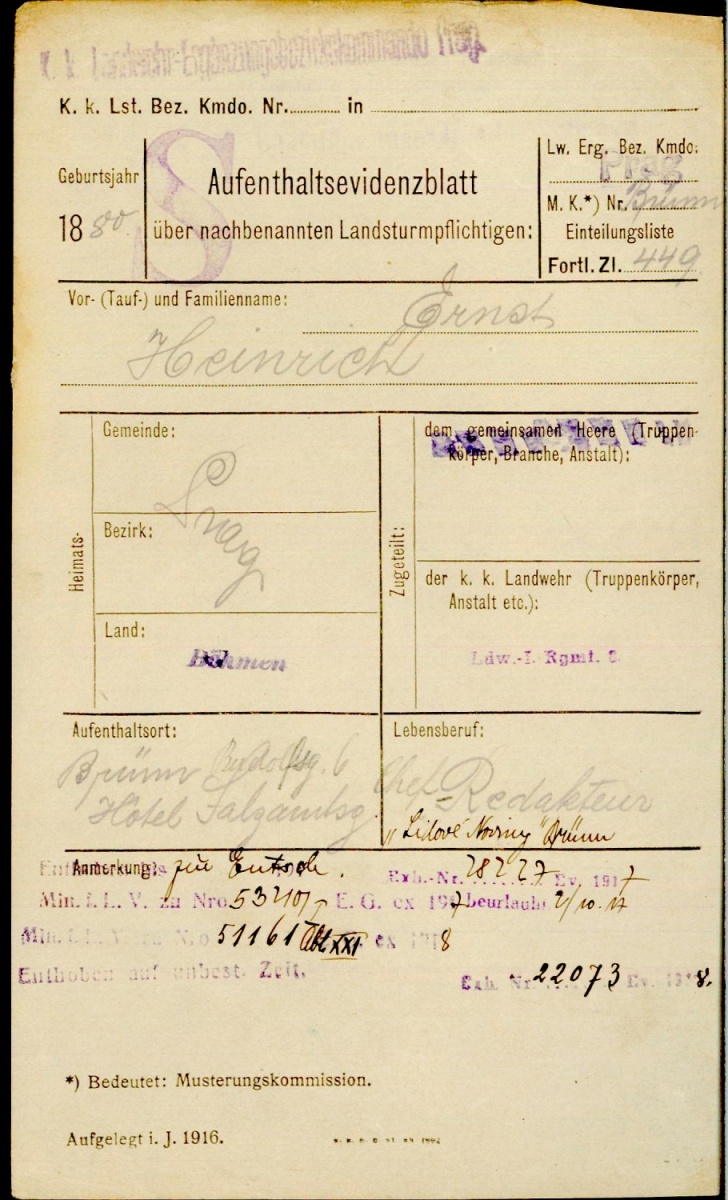 K. k. Landwehr-Ergänzungsbezirkskommando Prag
K. k. Lst. Bez. Kmdo. Nr. in
Geburtsjahr
1880.
S
Aufenthaltsevidenzblatt
über nachbenannten Landsturmpflichtigen:
Lw. Erg. Bez. Kmdo:
Prag
M. K.*) Nr. Brünn
Einteilungsliste
Fortl. Zl. 449
Vor- (Tauf-) und Familienname: Ernst
Heinrich
Heimats-
Gemeinde:
Prag
Bezirk:
Land:
Böhmen
Zugeteilt:
dem gemeinsamen Heere (Truppen-
körper, Branche, Anstalt):
der k. k. Landwehr (Truppenkörper,
Anstalt etc.):
Ldw.-I. Rgmt. 8
Aufenthaltsort:
Brünn Rudolfsg. 6
Hôtel Salzamtsg.
Lebensberuf:
Chef-Redakteur
„Lidové Noviny" Brünn
Anmerkung: zur Entsch. Exh.-Nr. 28227 Ev. 1917
Min. f. L. V. zu Nro E. G. ex 1917 beurlaubt
Min. f. L. V. zu Nro 51161 Abt XXI ex 1918
Enthoben auf unbest. Zeit. Exh. Nr. 22073 Ev. 1918.
*) Bedeutet: Musterungskommission.
Aufgelegt i. J. 1916.